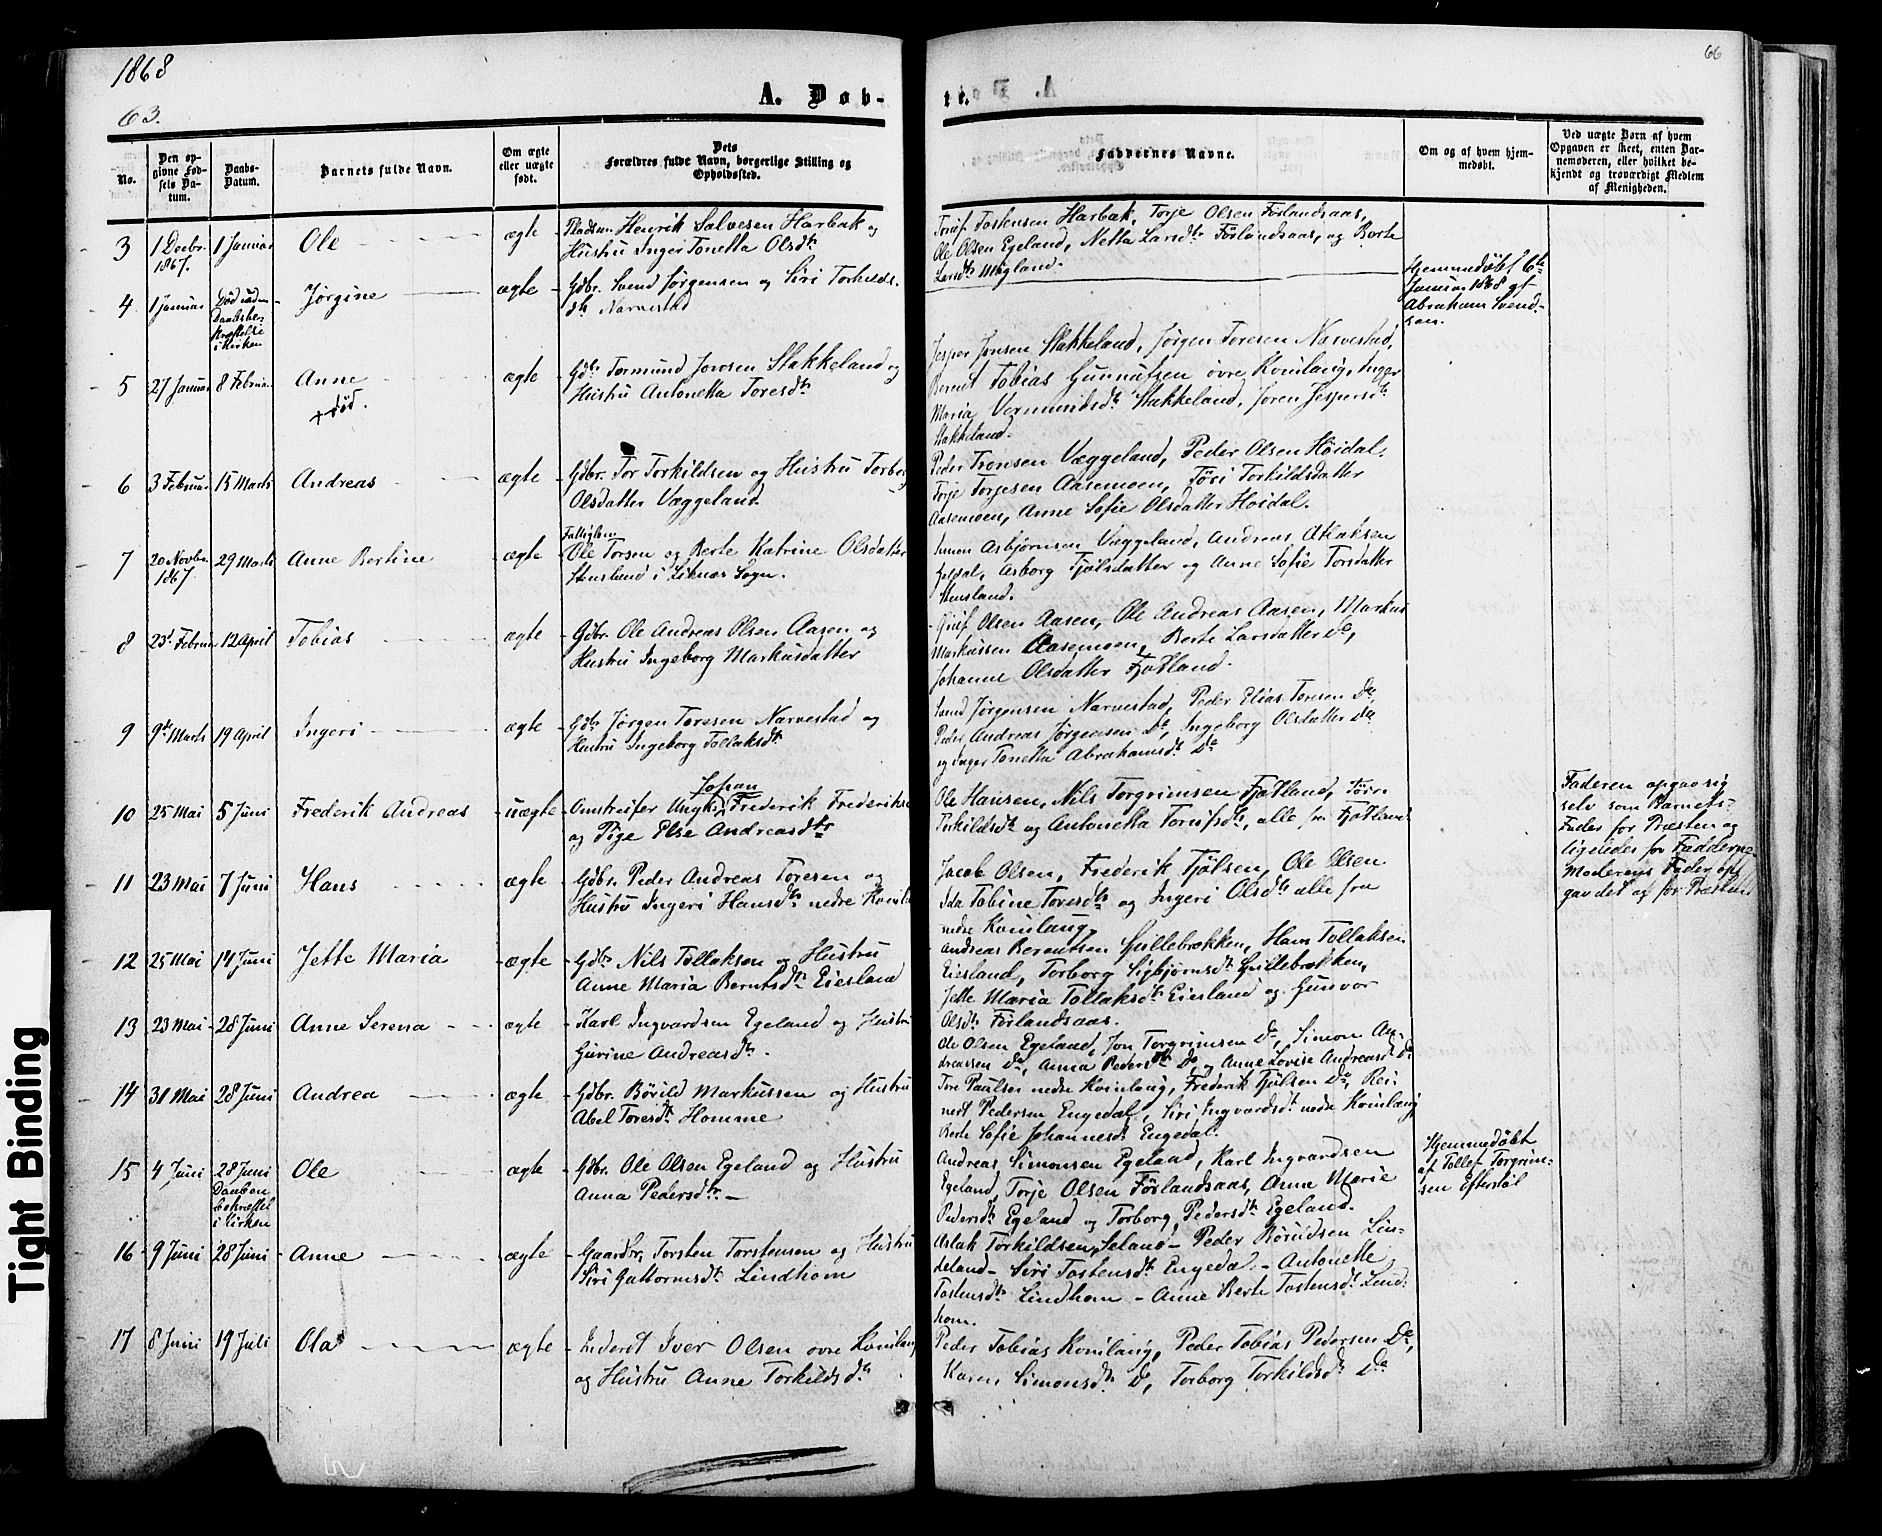 1868
63.
66
A. Døb-
te.
No.
Den op-
givne Fød-
sels Da-
tum.
Daabs-
Datum.
Barnets fulde Navn.
Om ægte
eller uægte
født.
Dets
Forældres fulde Navn, borgerlige Stilling og
Opholdssted.
Faddernes Navne.
Om og af hvem hjem-
medøbt.
Ved uægte Børn af hvem
Opgaven er skeet, enten Bar-
nemoderen, eller hvilket be-
kjendt og troværdigt Medlem
af Menigheden.
3
1 Decbr.
1867.
1 Januar
Ole
ægte
Pladsm. Henrik Salvesen Harbak og
Hustru Inger Tonetta Olsdtr
Torjus Tostensen Harbak, Torje Olsen Førlandsaas,
Ole Olsen Egeland, Netta Larsdtr Førlandsaas, og Berte
Larsdtr Møgland.
4
1 Januar
Død uden
Daabsbe-
kræftelse
i Kirken
Jørgine
ægte
Gdbr. Svend Jørgensen og Siri Torkilds-
dtr Narvestad
Hjemmedøbt 6te
Januar 1868 af
Abraham Svend-
sen.
5
27 Januar
8 Februar
Anne
+ død.
ægte
Gdbr. Tormund Jonsen Stakkeland og
Hustru Antonetta Toresdtr
Jesper Jonsen Stakkeland, Jørgen Toresen Narvestad,
Berent Tobias Gunnufsen øvre Kvinlaug, Inger
Maria Vermundsdtr Stakkeland, Joren Jespersdtr
Stakkeland.
6
3 Februar
15 Marts
Andreas
ægte
Gdbr. Tor Torkildsen og Hustru Torborg
Olsdatter Væggeland.
Peder Tronsen Væggeland, Peder Olsen Høidal,
Torje Torjesen Aasemoen, Tøri Torkildsdatter
Aasemoen, Anne Sofie Olsdatter Høidal.
7
20 Novbr.
1867.
29 Marts
Anne Bertine
ægte
Fattiglem
Ole Torsen og Berte Katrine Olsdatter
Stensland i Liknæs Sogn.
Simon Asbjørnsen Væggeland, Andreas Atlaksen
Asborg Tjølsdatter og Anne Sofie Torsdatter
Stensland.
8
23 Februar
12 April
Tobias
ægte
Gdbr. Ole Andreas Olsen Aasen og
Hustru Ingeborg Markusdatter
Olsen Aasen, Ole Andreas Aasen, Markus
Markussen Aasemoen, Berte Larsdatter Do,
Johanne Olsdatter Fjotland.
9
9de Marts
19 April
Ingeri
ægte
Gdbr Jørgen Toresen Narvestad og
Hustru Ingeborg Tollaksdtr
Svend Jørgensen Narvestad, Peder Elias Toresen Do
Peder Andreas Jørgensen Do, Ingeborg Olsdatter Do
og Inger Tonetta Abrahamsdtr Do
10
25 Mai
5 Juni
Frederik Andreas
uægte
Omstreifer Ungk. Johan Frederik Frederiksen
og Pige Else Andreasdtr
Ole Hansen, Nils Torgrimsen Fjotland, Tørri
Torkildsdtr og Antonetta Torjusdtr, alle fra Fjotland
Faderen opgav sig
selv som Barnets
Fader for Præsten og
ligeledes for Fadderne.
Moderens Fader op-
gav det og for Præsten
11
23 Mai
7 Juni
Hans
ægte
Gdbr. Peder Andreas Toresen og
Hustru Ingeri Hansdtr nedre Kvinl
Jacob Olsen, Frederik Tjølsen, Ole Olsen
Ida Tobine Toresdtr og Ingeri Olsdtr alle fra
nedre Kvinlaug.
12
25 Mai
14 Juni
Jette Maria
ægte
Gdbr Nils Tollaksen og Hustru
Anne Maria Berntsdtr Eiesland
Andreas Berentsen Gullebrækken, Hans Tollaksen
Eiesland, Torborg Sigbjørnsdtr Gullebrækken,
Jette Maria Tollaksdtr Eiesland og Gunvor
Olsdtr Førlandsaas.
13
23 Mai
28 Juni
Anne Serena
ægte
Karl Ingvardsen Egeland og Hustru
Gurine Andreasdtr.
Ole Olsen Egeland, Jon Torgrimsen Do, Simon An-
dreassen Do, Anna Pedersdtr Do, og Anne Lovise Andreasdtr Do
14
31 Mai
28 Juni
Andrea
ægte
Gdbr. Børild Markussen og Hustru
Abel Toresdtr Homme
Tore Paulsen nedre Kvinlaug, Frederik Tjølsen Do, Rei-
nert Pedersen Engedal, Siri Ingvardsdtr nedre Kvinlaug
Berte Sofie Johannesdtr Engedal.
15
4 Juni
28 Juni
Daaben
bekræftet
i Kirken
Ole
ægte
Gdbr. Ole Olsen Egeland og Hustru
Anna Pedersdtr.
Andreas Simonsen Egeland, Karl Ingvardsen
Egeland, Torje Olsen Førlandsaas, Anne Marie
Pedersdtr Egeland og Torborg Pedersdtr Egeland.
Hjemmedøbt
af Tollef Torgrim-
sen Eftestøl
16
9 Juni
28 Juni
Anne
ægte
Gaardbr. Torsten Torstensen og Hustru
Siri Guttormsdtr Lindhom
Aslak Torkildsen Seland - Peder Børuldsen Lin-
deland - Siri Tostensdtr Engedal. - Antonette
Tostensdtr Lindhom - Anne Berte Tostensdtr Lind-
hom.
17
8 Juni
19 Juli
Ola
ægte
Inderst Iver Olsen øvre Kvinlaug
og Hustru Anne Torkildsdtr
Peder Tobias Kvinlaug, Peder Tobias Pedersen Do,
Karen Simonsdtr Do, Torborg Torkildsdtr Do
Tight Binding